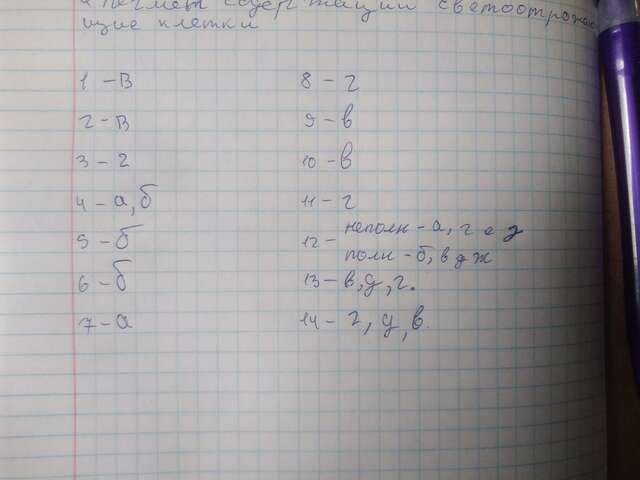 пигмент содержащий светоотражаю
щие клетки
1 - в
2 - в
3 - г
4 - а, б
5 - б
6 - б
7 - а
8 - г
9 - в
10 - в
11 - г
12 - неполн - а, г е з
полн - б, в д ж
13 - в, д, г.
14 - г, д, в.